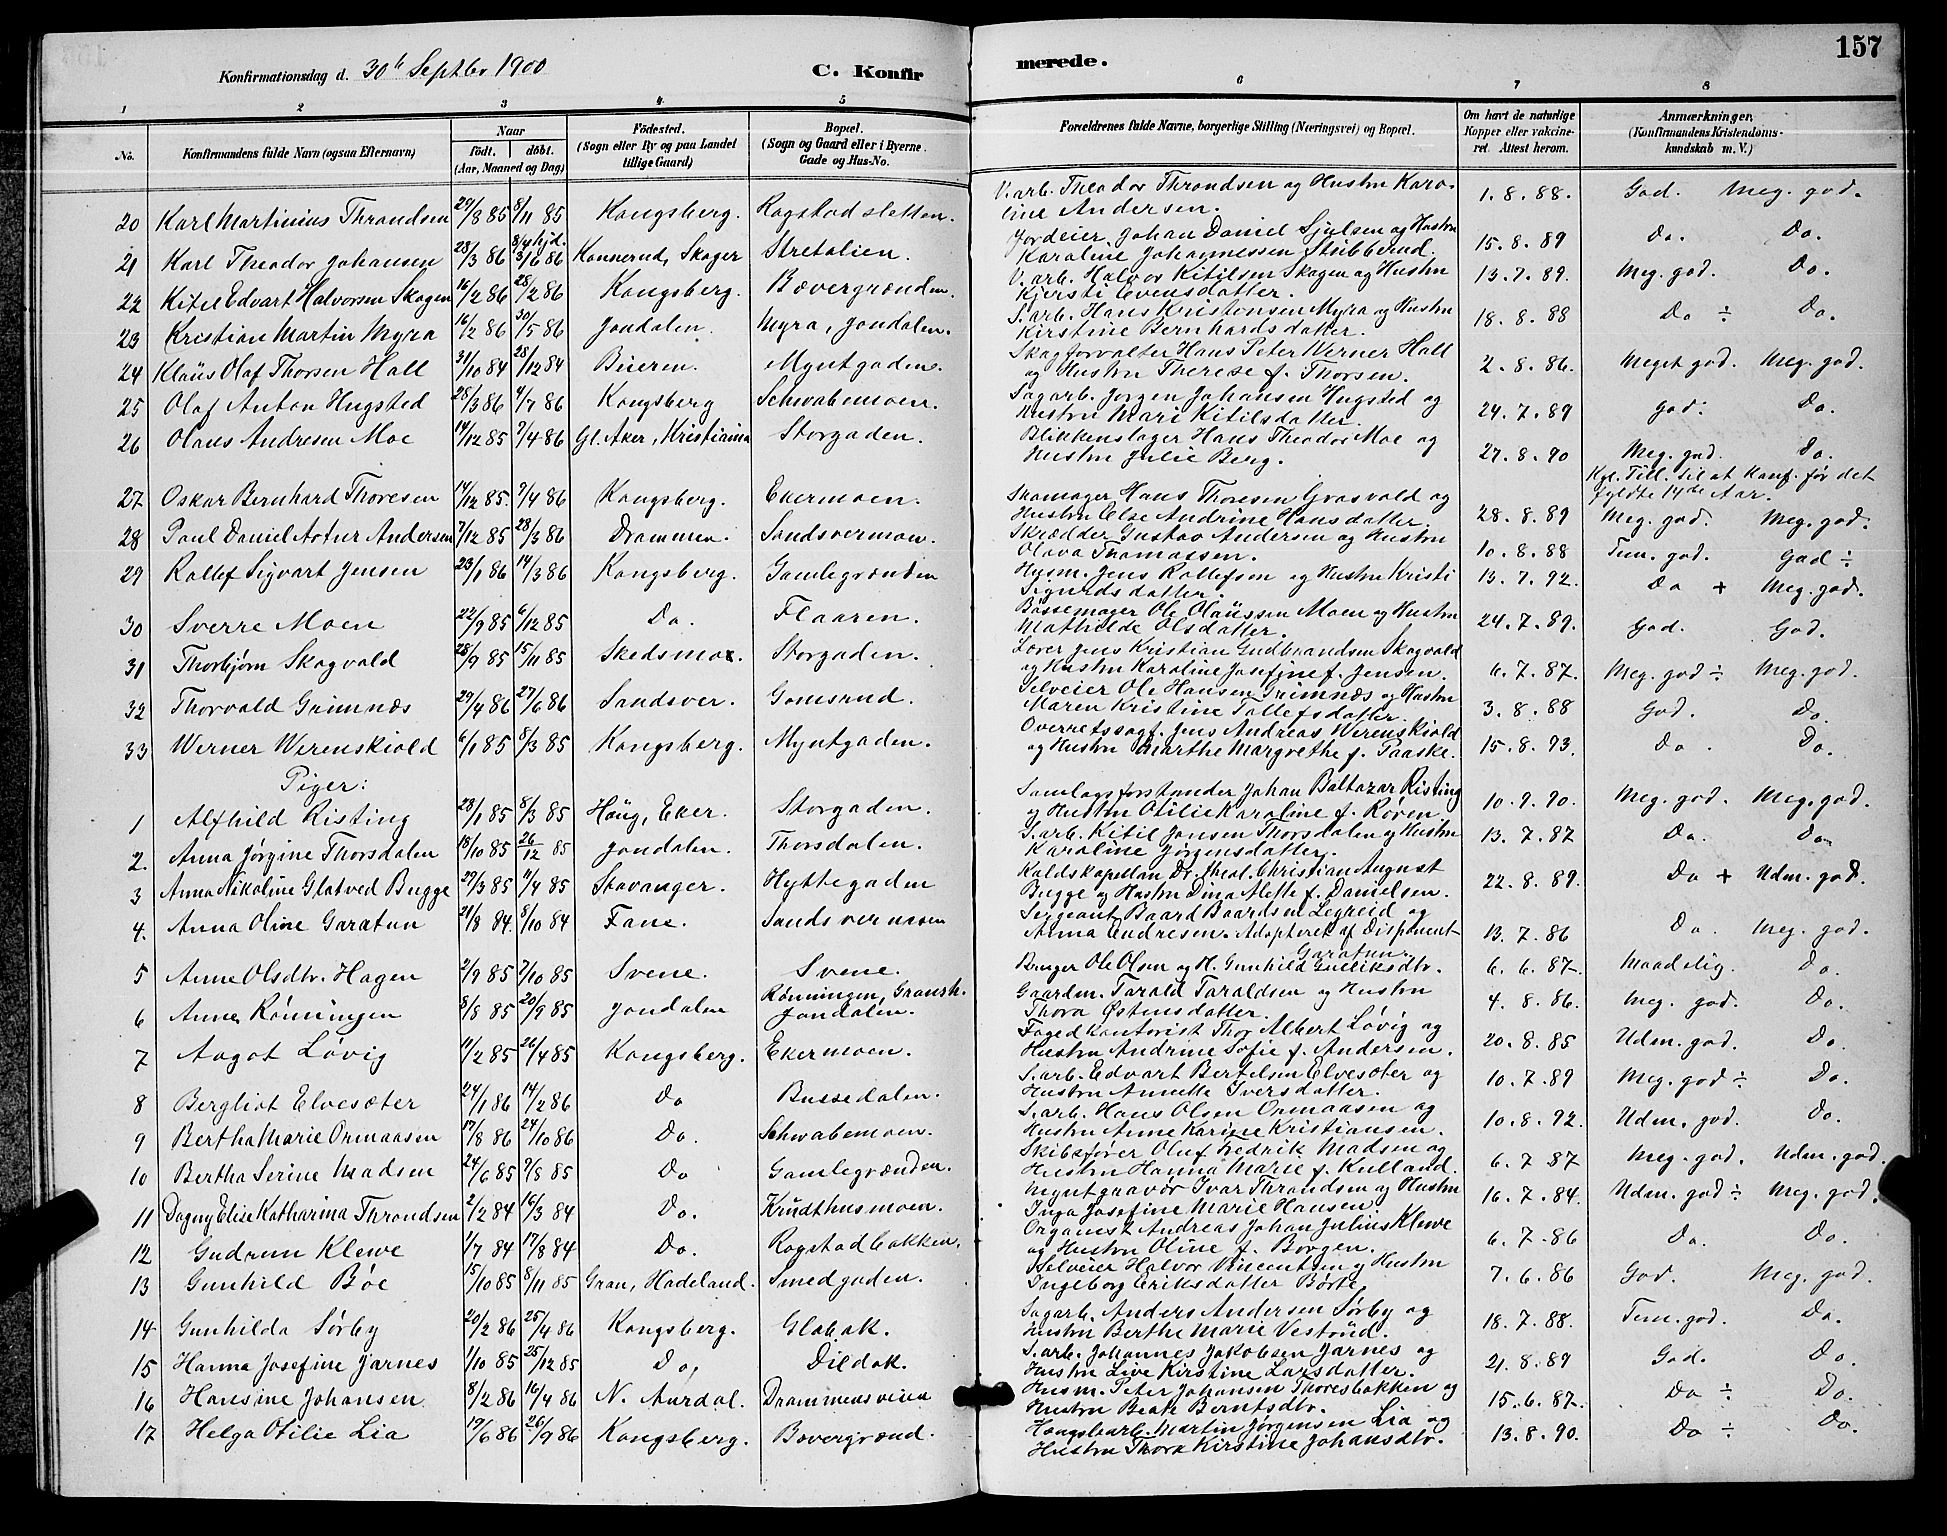 157
Konfirmationsdag d. 30te Septbr 1900
C. Konfir
merede.
1 2 3 4 5 6 7 8
No.
Konfirmandens fulde Navn (ogsaa Efternavn)
Naar
Födt. döbt.
(Aar, Maaned og Dag)
Födested.
(Sogn eller By og paa Landet
tillige Gaard)
Bopæl.
(Sogn og Gaard eller i Byerne
Gade og Hus-No.
Forældrenes fulde Navne, borgerlige Stilling (Næringsvei) og Bopæl.
Om havt de naturlige
Kopper eller vakcine-
ret. Attest herom.
Anmærkninger.
(Konfirmandens Kristendoms-
kundskab m. V.)
20 Karl Martinius Thrandsen 29/8 85 8/11 85 Kongsberg. Rogstadsletten. V. arb. Theodor Thrandsen og Hustru Karo- 1.8.88. God. Meg. god.
line Andersen.
21 Karl Theodor Johansen 28/3 86 8/4 hjd. 3/6 86 Konnerud, Skoger Stretalien. Jordeier Johan Daniel Sjulsen og Hustru 15.8.89 Do. Do.
Karoline Johannessen Stubberud.
22 Kitel Edvart Halvorsen Skogen 16/2 86 28/2 86 Kongsberg. Bævergrænden. V. arb. Halvor Kitilsen Skogen og Hustru 13.7.89. Meg. god. Do.
Kjersti Evensdatter.
23 Kristian Martin Myra 16/2 86 30/5 86 Jondalen. Myra, Jondalen. S. arb. Hans Kristensen Myra og Hustru 18.8.88 Do ÷ Do.
Kirstine Bernhardsdatter.
24 Klaüs Olaf Thorsen Hall 31/10 84 28/12 84 Bieren. Myntgaden. Skogforvalter Hans Peter Werner Hall 2.8.86. Meget god. Meg. god.
og Hustru Therese f. Thorsen.
25 Olaf Anton Hugsted 28/3 86 4/7 86 Kongsberg Schwabemoen. Sagarb. Jörgen Johansen Hugsted og 24.7.89 God. Do.
Hustru Mari Kitilsdatter.
26 Olaus Andresen Moe 14/12 85 7/4 86 Gl. Aker, Kristiania Storgaden. Blikkenslager Hans Theodor Moe og 27.8.90 Meg. god. Do.
Hustru Julie Berg.
Kgl. Till. til at Konf. før det
fyldte 14de Aar.
27 Oskar Bernhard Thoresen 14/12 85. 7/4 86 Kongsberg. Ekermoen. Skomager Hans Thoresen Grosvold og 28.8.89 Meg. god. Meg. god.
Hustru Else Andrine Hansdatter.
28 Paul Daniel Artur Andersen 7/12 85 28/3 86 Drammen. Sandsvermoen. Skrædder Gustav Andersen og Hustru 10.8.88 Tem. god. God ÷
Olava Thomassen.
29 Rollef Sigvart Jensen 23/1 86 14/3 86 Kongsberg. Gamlegrænden Husm. Jens Rollefsen og Hustru Kristi 13.7.92. Do + Meg. god.
Sigurdsdatter.
30 Sverre Moen 22/9 85 6/12 85 Do. Flaaren. Bössemager Ole Olaüssen Moen og Hustru 24.7.89. God. God.
Mathilde Olsdatter.
31 Thorbjørn Skogvold 28/9 85 15/11 85 Skedsmo. Storgaden. Lærer Jens Kristian Gudbrandsen Skogvold 6.7.87. Meg. god ÷ Meg. god.
og Hustru Karoline Josefine f. Jensen.
32 Thorvald Grimnæs 29/4 86 27/6 86 Sandsver. Gomsrud. Selveier Ole Hansen Grimnæs og Hustru 3.8.88 God. Do.
Maren Kristine Tollefsdatter.
33 Werner Werenskiold 6/1 85 8/3 85 Kongsberg. Myntgaden. Overretssagf. Jens Andreas Werenskiold 15.8.93. Do. Do.
og Hustru Marthe Margrethe f. Paaske.
Piger:
1 Alfhild Risting 23/1 85 8/3 85 Hoüg, Eker. Storgaden. Samlagsforstander Johan Baltazar Risting 10.9.90. Meg. god. Meg. god.
og Hustru Otilie Karoline f. Røren.
2. Anna Jørgine Thorsdalen 18/10 85 26/12 85 Jondalen. Thorsdalen. S. arb. Kitil Jonsen Thorsdalen og Hustru 13.7.87 Do. Do.
Karoline Jørgensdatter.
3 Anna Nikoline Glatved Bugge 29/3 85 11/4 85 Stavanger. Hyttegaden Kaldskapellan Dr. theol. Christian August 22.8.89. Do + Udm. god.
Bugge og Hustru Dina Alette f. Danielsen.
4. Anna Oline Garatun 21/8 84. 8/10 84 Fane. Sandsvermoen Sergeant Baard Baardsen Legreid og 13.7.86 Do. Meg. god.
Anna Endresen. Adopteret af Disponent
Garatun.
5 Anne Olsdtr. Hagen 2/9 85 7/10 85 Svene. Svene. Bruger Ole Olsen og H. Gunhild Gulliksdtr. 6.6.87. Maadelig. Do.
6 Anne Rønningen 8/8 85 20/9 85 Jondalen Rønningen, Gransh. Gaardm. Tarald Taraldsen og Hustru 4.8.86. Meg. god. Do.
Jondalen. Thora Østensdatter.
7 Aagot Løvig 11/2 85 26/4 85 Kongsberg. Ekermoen. Fogedkontorist Thor Albert Løvig og 20.8.85 Udm. god. Do.
Hustru Andrine Sofie f. Andersen.
8 Bergliot Elvesæter 24/1 86 14/2 86 Do Bussedalen. S. arb. Edvart Bertelsen Elvesæter og 10.7.89 Meg. god ÷ Do.
Hustru Annette Iversdatter.
9 Bertha Marie Ormaasen 17/8 86 24/10 86 Do. Schwabemoen. S. arb. Hans Olsen Ormaasen og 10.8.92. Udm. god. Do.
Hustru Anne Karine Kristiansen.
10 Bertha Serine Madsen 24/6 85 7/8 85 Do Gamlegrænden. Skibsfører Oluf Fredrik Madsen og 6.7.87 Meg. god. Udm. god.
Hustru Hanna Marie f. Kulland.
11 Dagny Elise Katharina Throndsen 2/2 84 16/3 84 Do. Krudthusmoen. Myntgravør Ivar Throndsen og Hustru 16.7.84. Udm. god ÷ Meg. god.
Inga Josefine Marie Hansen.
12 Gudrun Klewe 1/7 84 17/8 84 Do. Rogstadbakken. Organist Andreas Johan Julius Klewe 6.7.86 Do. Do.
og Hustru Oline f. Borgen.
13 Gunhild Bøe 15/10 85 8/11 85 Gran, Hadeland. Smedgaden. Selveier Halvor Vincentsen og Hustru 7.6.86 God. Meg. god.
Ingeborg Eriksdatter Børte.
14 Gunhilda Sørby 20/2 86 25/4 86 Kongsberg. Glabak. Sagarb. Anders Andersen Sørby og 18.7.88. Tem. god. Do.
Hustru Berthe Marie Vestbud.
15 Hanna Josefine Jarnes 1/10 85 25/12 85 Do. Dildok. S. arb. Johannes Jakobsen Jarnes og 21.8.89 God. Do.
Hustru Live Kirstine Larsdatter.
16 Hansine Johansen 8/2 86 16/4 86 N. Aurdal. Drammensveien Husm. Peter Johansen Thoresbakken og 15.6.87. Do ÷ Do.
Hustru Beate Berntsdtr.
17 Helga Otilie Lia 19/6 86 26/9 86 Kongsberg. Bovergrænd. Martin Jørgensen Lia og 13.8.90. Do ÷ Do.
Hustru Thora Kirstine Johansdtr.